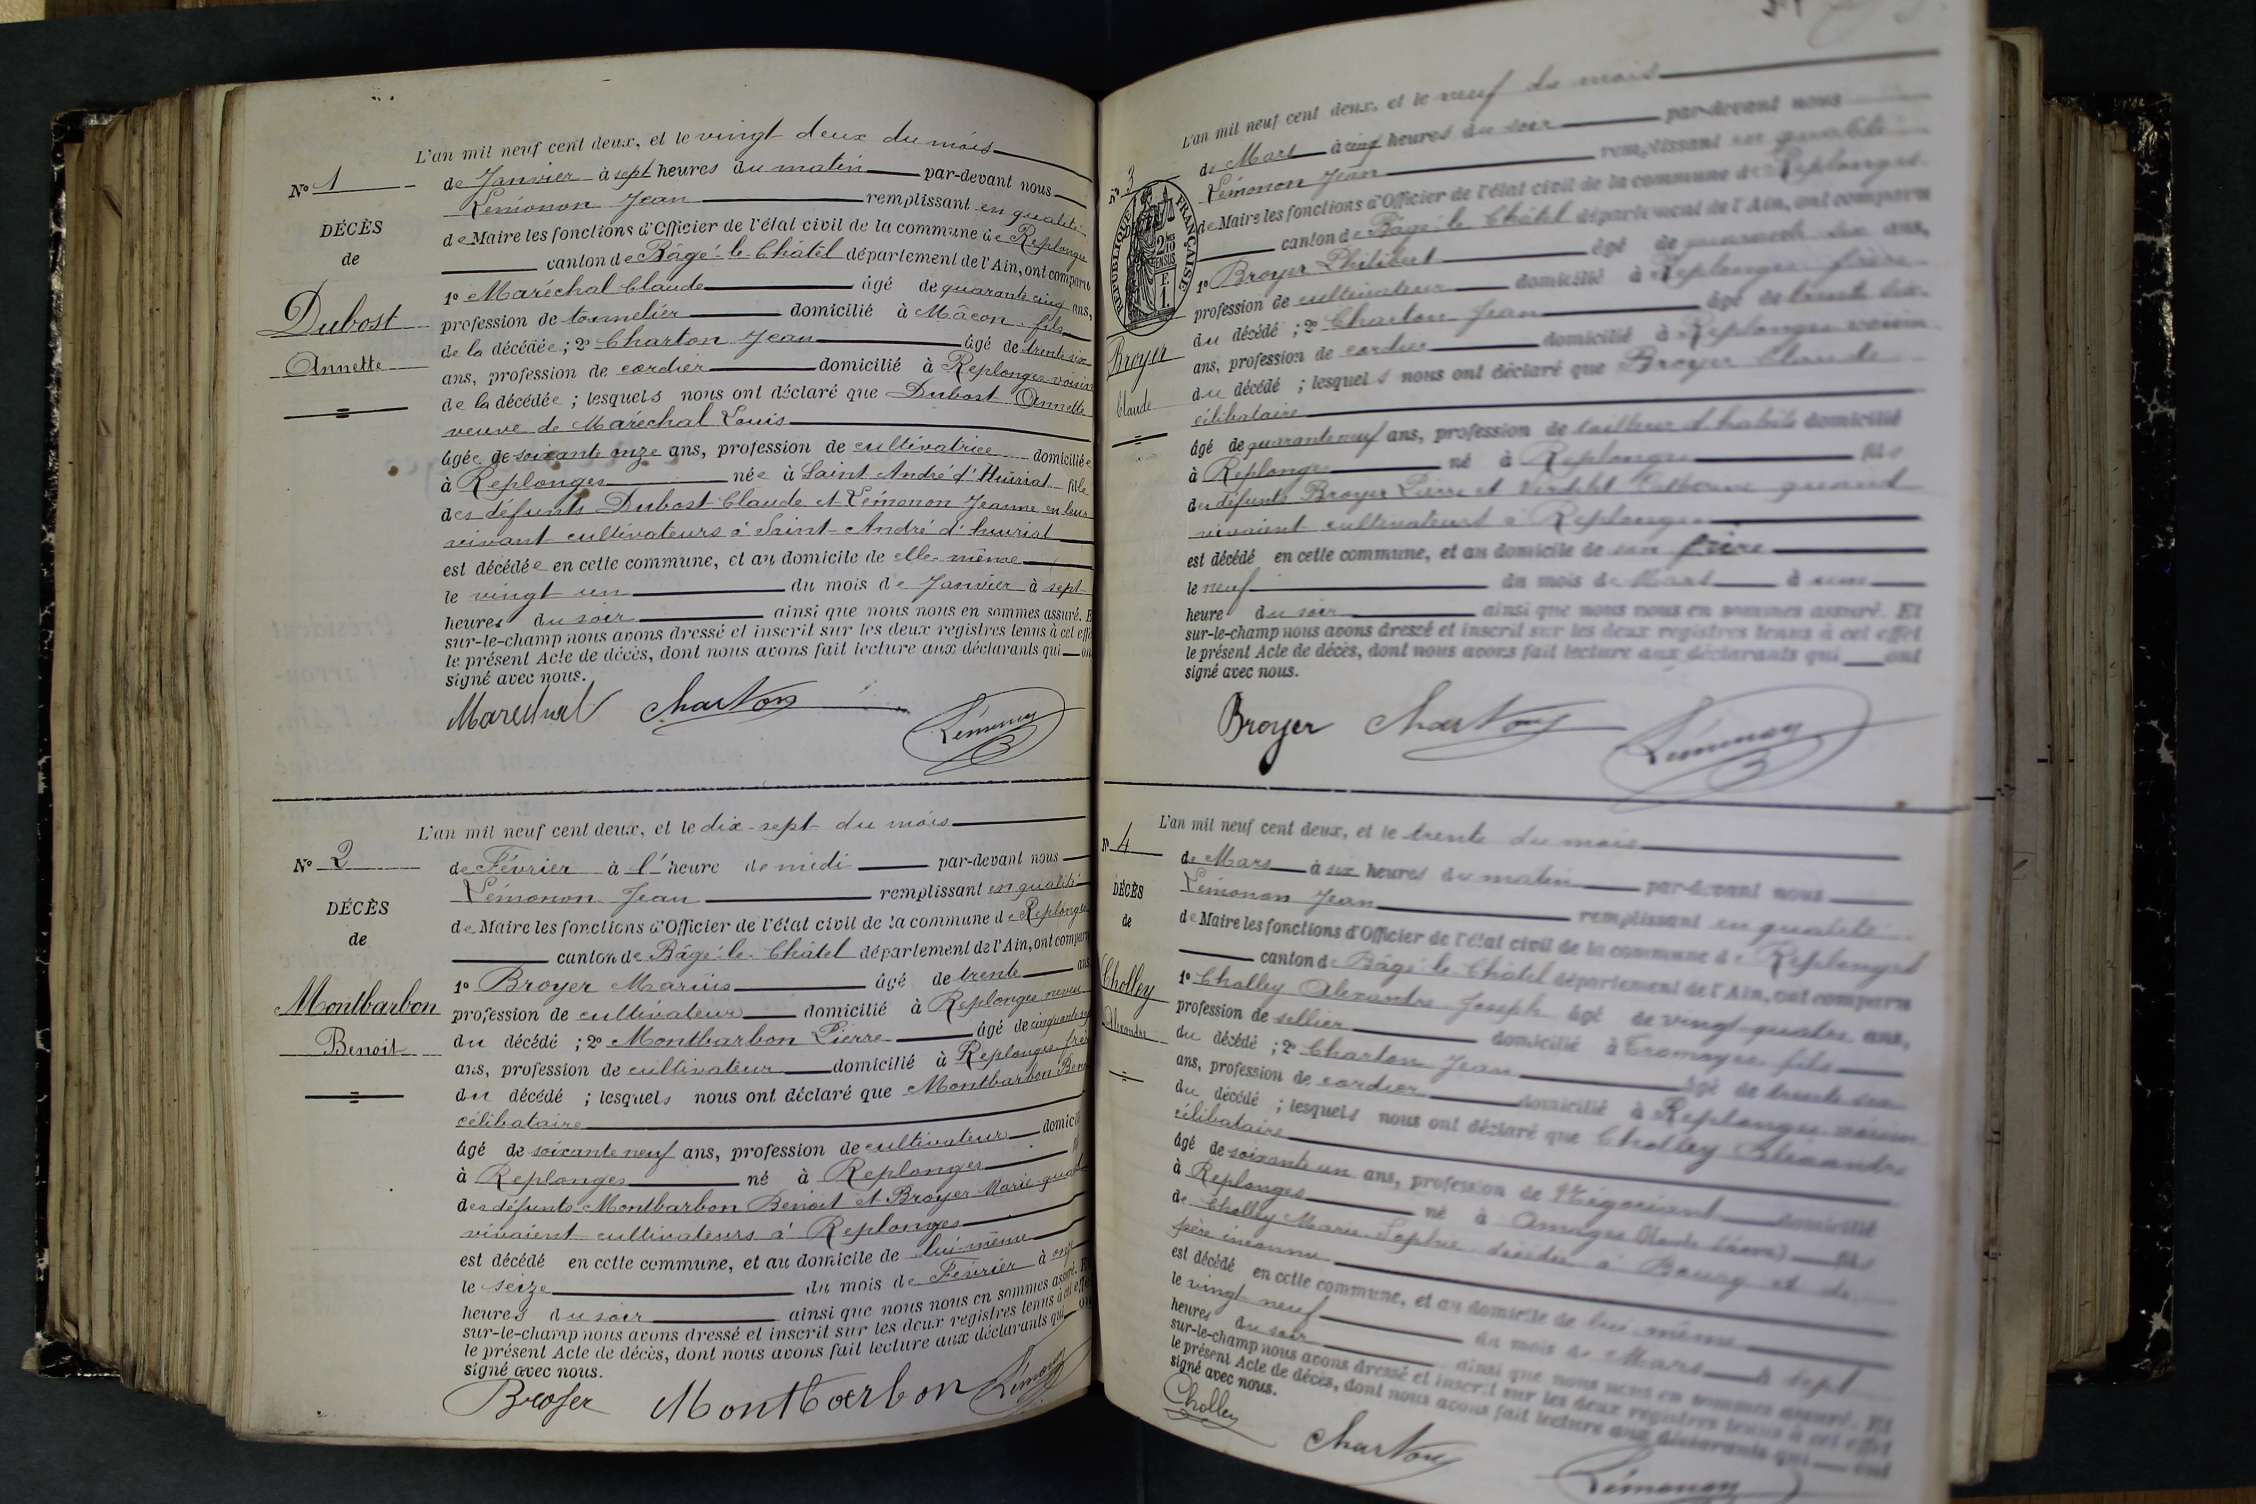 L'an mil neuf cent deux, et le vingt deux du mois
N° 1
de Janvier à sept heures du matin par-devant nous
Lémonon Jean remplissant en qualité
DÉCÈS
de Maire les fonctions d'Officier de l'état civil de la commune de Replonges
de
canton de Bâgé-le-Châtel département de l'Ain, ont comparu
1° Maréchal Claude âgé de quarante cinq ans,
Dubost
profession de tonnelier domicilié à Mâcon fils
de la décédée ; 2° Charton Jean âgé de trente six
Annette
ans, profession de cordier domicilié à Replonges voisin
de la décédée ; lesquels nous ont déclaré que Dubost Annette
veuve de Maréchal Louis
âgée de soixante onze ans, profession de cultivatrice domiciliée
à Replonges née à Saint André d'Huiriat fille
des défunts Dubost Claude et Lémonon Jeanne en leur
vivant cultivateurs à Saint-André d'huiriat
est décédée en cette commune, et au domicile de elle-même
le vingt un du mois de Janvier à sept
heures du soir ainsi que nous nous en sommes assuré. E
sur-le-champ nous avons dressé et inscrit sur les deux registres tenus à cet effe
le présent Acte de décès, dont nous avons fait lecture aux déclarants qui on
signé avec nous.
Marechal Charton Lémonon
L'an mil neuf cent deux, et le dix-sept du mois
N° 2
de Février à l'heure de midi par-devant nous
Lémonon Jean remplissant en qualité
DÉCÈS
de Maire les fonctions d'Officier de l'état civil de la commune de Replonges
de
canton de Bâgé-le-Châtel département de l'Ain, ont comparu
1° Broyer Marius âgé de trente ans
Montbarbon
profession de cultivateur domicilié à Replonges neveu
Benoit
du décédé ; 2° Montbarbon Pierre âgé de
ans, profession de cultivateur domicilié à Replonges frère
du décédé ; lesquels nous ont déclaré que Montbarbon Ben
célibataire
âgé de soixante neuf ans, profession de cultivateur domicili
à Replonges né à Replonges
des défunts Montbarbon Benoit et Broyer Marie quand
vivaient cultivateurs à Replonges
est décédé en cette commune, et au domicile de lui-même
le seize du mois de Février à onze
heures du soir ainsi que nous nous en sommes assuré. E
sur-le-champ nous avons dressé et inscrit sur les deux registres tenus à cet effe
le présent Acte de décès, dont nous avons fait lecture aux déclarants qui on
signé avec nous.
Broyer Montbarbon Lémonon
L'an mil neuf cent deux, et le neuf du mois
N° 3
de Mars à cinq heures du soir par-devant nous
Lémonon Jean remplissant en qualité
RÉPUBLIQUE FRANÇAISE
2/10 EN SUS
E
1.
de Maire les fonctions d'Officier de l'état civil de la commune de Replonges
canton de Bâgé-le-Châtel département de l'Ain, ont comparu
1° Broyer Philibert âgé de quarante six ans,
profession de cultivateur domicilié à Replonges frère
du décédé ; 2° Charton Jean âgé de trente six
Broyer
ans, profession de cordier domicilié à Replonges voisin
Claude
du décédé ; lesquels nous ont déclaré que Broyer Claude
célibataire
âgé de quarante neuf ans, profession de tailleur d'habits domicilié
à Replonges né à Replonges fils
des défunts Broyer Pierre et quand
vivaient cultivateurs à Replonges
est décédé en cette commune, et au domicile de son frère
le neuf du mois de Mars à une
heure du soir ainsi que nous nous en sommes assuré. Et
sur-le-champ nous avons dressé et inscrit sur les deux registres tenus à cet effet
le présent Acte de décès, dont nous avons fait lecture aux déclarants qui ont
signé avec nous.
Broyer Charton Lémonon
L'an mil neuf cent deux, et le trente du mois
N° 4
de Mars à six heures du matin par-devant nous
DÉCÈS
Lémonon Jean remplissant en qualité
de
de Maire les fonctions d'Officier de l'état civil de la commune de Replonges
canton de Bâgé-le-Châtel département de l'Ain, ont comparu
Cholley
1° Cholley Alexandre Joseph âgé de vingt quatre ans,
Alexandre
profession de sellier domicilié à Cromayre fils
du décédé ; 2° Charton Jean âgé de trente six
ans, profession de cordier domicilié à Replonges voisin
du décédé ; lesquels nous ont déclaré que Cholley Alexandre
célibataire
âgé de soixante un ans, profession de Négociant domicilié
à Replonges né à Amagne (Haute Saône) fils
de Cholley Marie Sophie décédée à Bourg et de
père inconnu
est décédé en cette commune, et au domicile de lui-même
le vingt neuf du mois de Mars à sept
heures du soir ainsi que nous nous en sommes assuré. Et
sur-le-champ nous avons dressé et inscrit sur les deux registres tenus à cet effet
le présent Acte de décès, dont nous avons fait lecture aux déclarants qui ont
signé avec nous.
Cholley Charton Lémonon